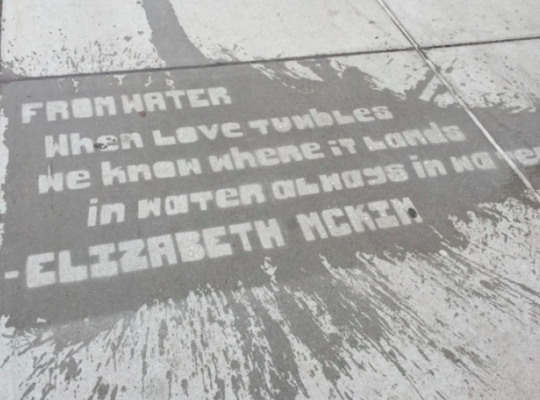 FROM WATER
When Love Tumbles
We know where iT Lands
in waTer always in waTer
-ELIZABETH MCKIM